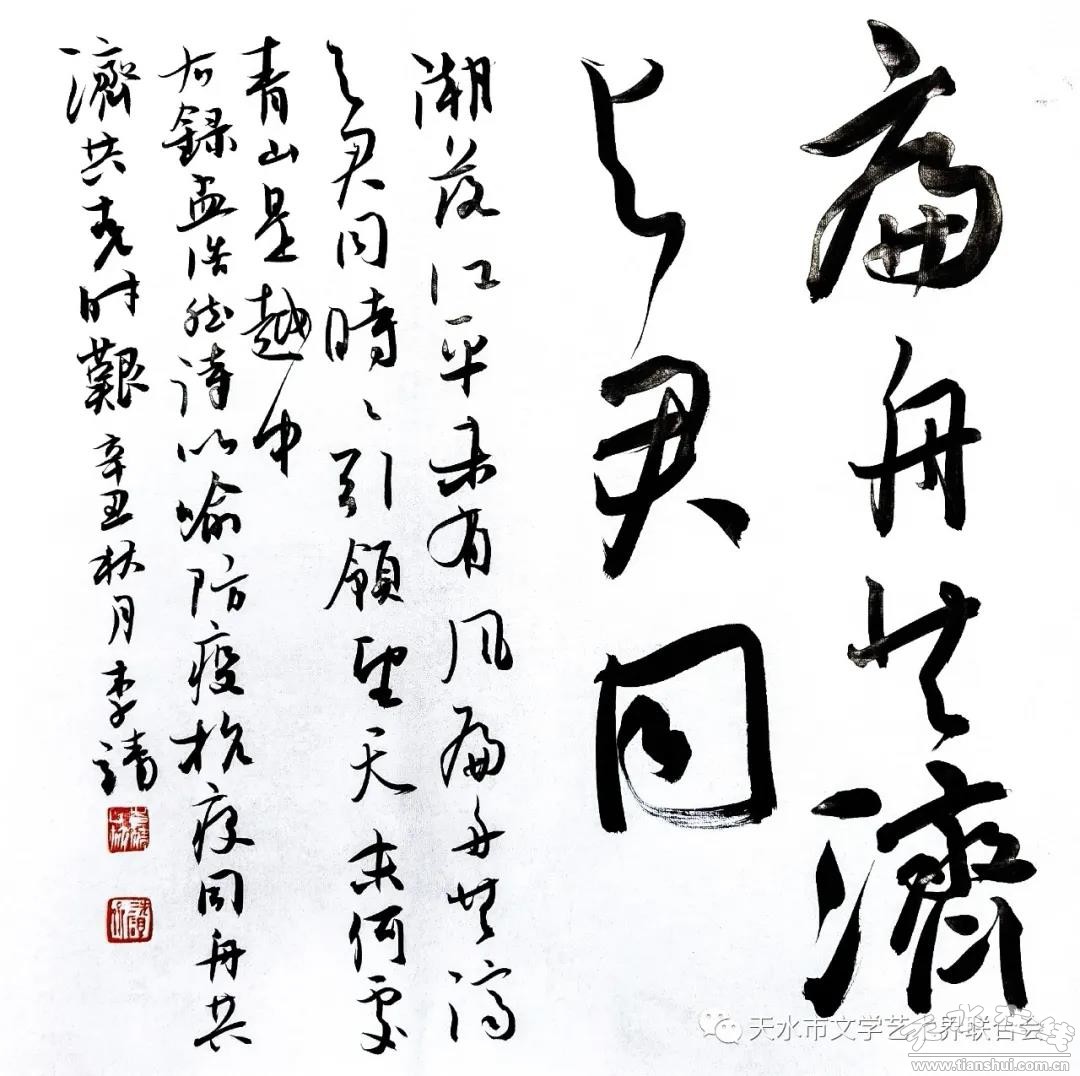 扁舟共濟
与君同
潮落江平未有風扁舟共濟
与君同時〻引領望天末何處
青山是越中
右録孟浩然詩以喻防疫抗疫同舟共
濟共克时艱辛丑秋月李靖
天水市文学艺术界联合会
天水在线
www.tianshui.com.cn